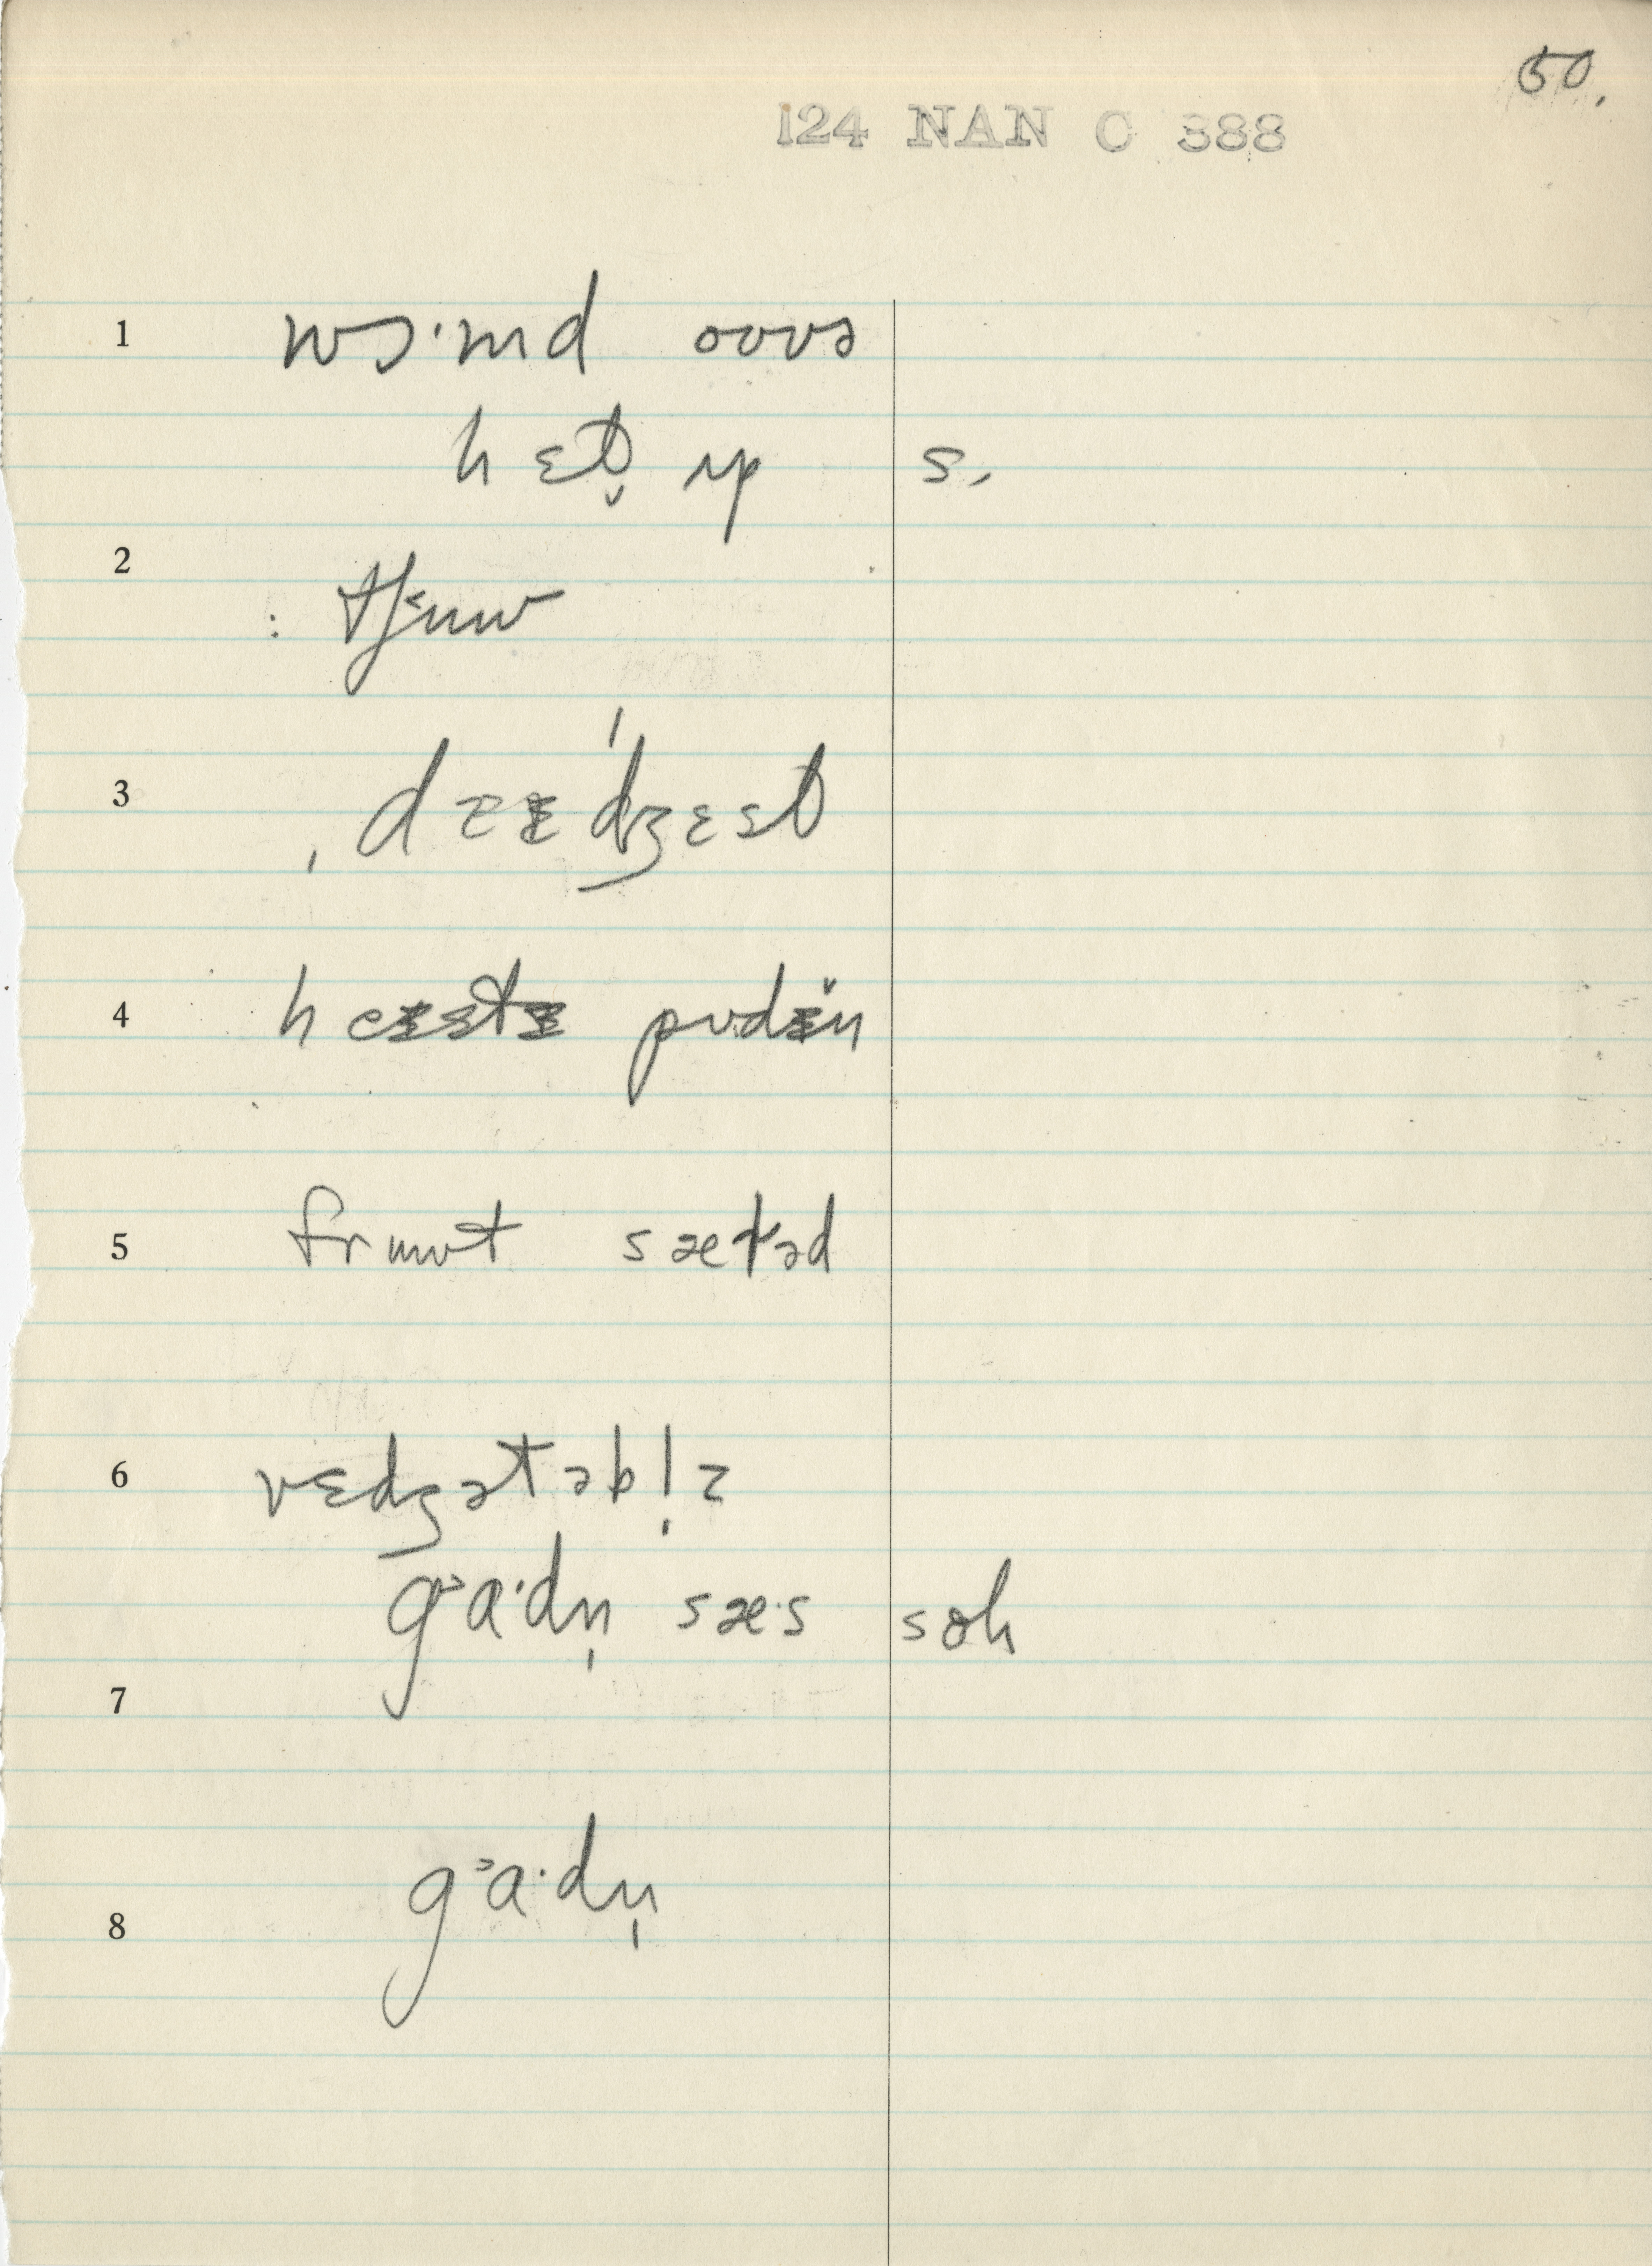 50.
124 NAN C 388
1 wɔ·md oʊvə
hɛt̬ ʌp s.
2 : tʃuw
3 ˌdɪɪˈdʒɛst
4 heɪstɪ pʊdɪ̆ŋ
5 frmwt sætəd
6 vɛdʒətəbl̩z
gᵊa·dn̩ sæ·s soh
7
8 gᵊa·dn̩